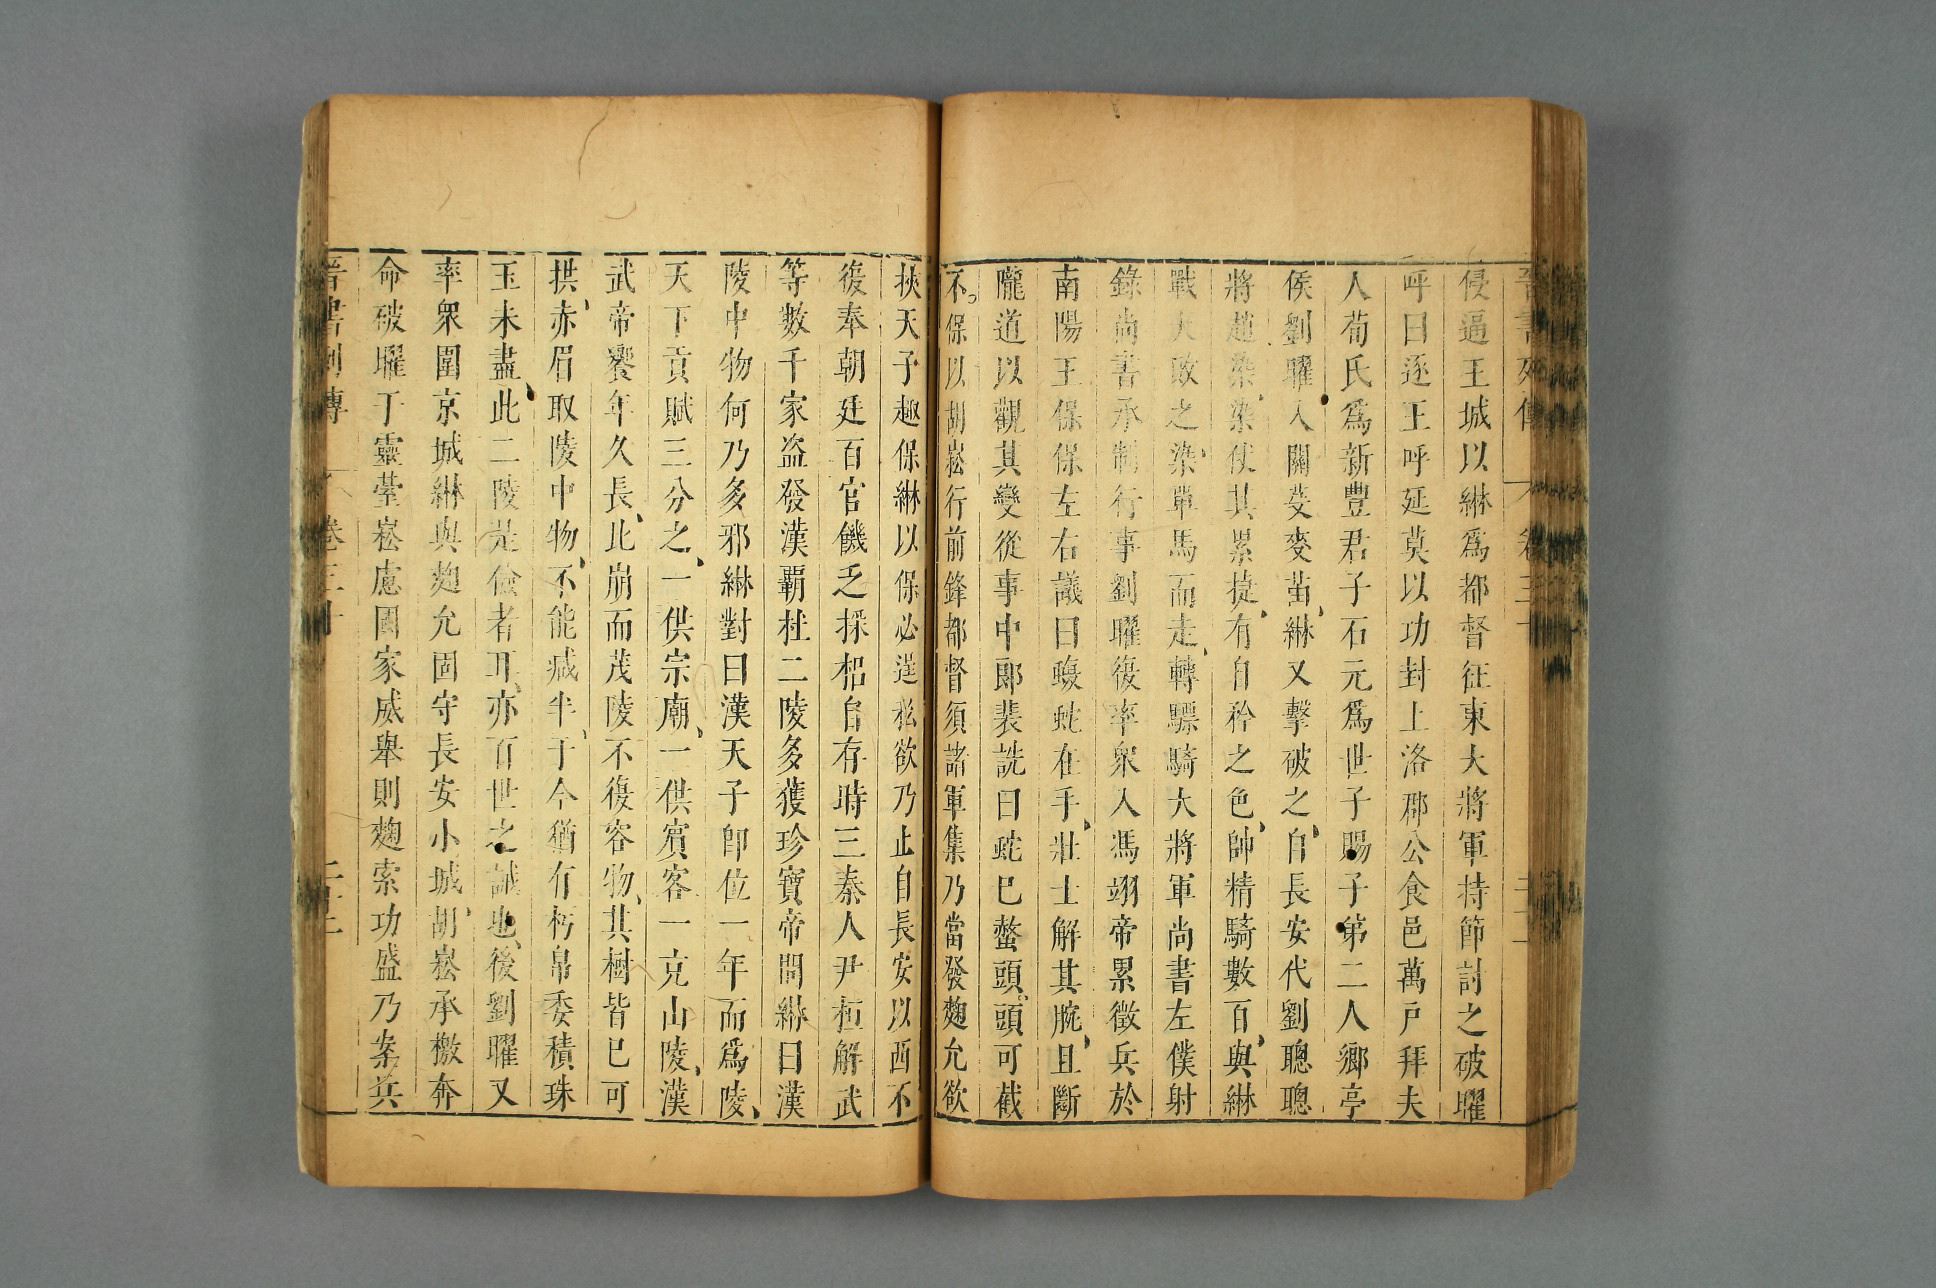 侵逼王城以綝爲都督征東大將軍持節討之破曜
呼曰逐王呼延莫以功封上洛郡公食邑萬戸拜夫
人荀氏爲新豐君子石元爲世子賜子弟二人鄉亭
侯劉曜入關芟麥苗綝又擊破之自長安代劉聰聰
將趙染染仗其累捷有自矜之色帥精騎數百與綝
戰大敗之染單馬而走轉驃騎大將軍尚書左僕射
錄尚書承制行事劉曜復率衆入馮翊帝累徵兵於
南陽王保保左右議曰蝮蛇在手壯士解其腕且斷
隴道以觀其變從事中郎裴詵曰蛇已螫頭頭可截
不保以胡崧行前鋒都督須諸軍集乃當發麴允欲
挾天子趣保綝以保必逞私欲乃止自長安以西不
復奉朝廷百官饑乏採稆自存時三秦人尹桓解武
等數千家盜發漢覇杜二陵多獲珍寶帝問綝曰漢
陵中物何乃多邪綝對曰漢天子卽位一年而爲陵
天下貢賦三分之一供宗廟一供賓客一充山陵漢
武帝饗年久長比崩而茂陵不復容物其樹皆已可
拱赤眉取陵中物不能减半于今猶有朽帛委積珠
玉未盡此二陵是儉者耳亦百世之誡也後劉曜又
率衆圍京城綝與麴允固守長安小城胡崧承檄奔
命破曜于靈臺崧慮國家威舉則麴索功盛乃案兵
晉書列傳 卷三十